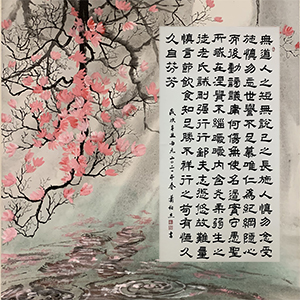 無道人之短無說己之長施人慎勿念受
施慎勿忘世譽不足慕唯仁為紀綱隱心
而後動謗議庸何傷無使名過實守愚聖
所臧在涅貴不緇曖曖內含光柔弱生之
徒老氏誡剛強行行鄙夫志悠悠故難量
慎言節飲食知足勝不祥行之苟有恆久
久自芬芳